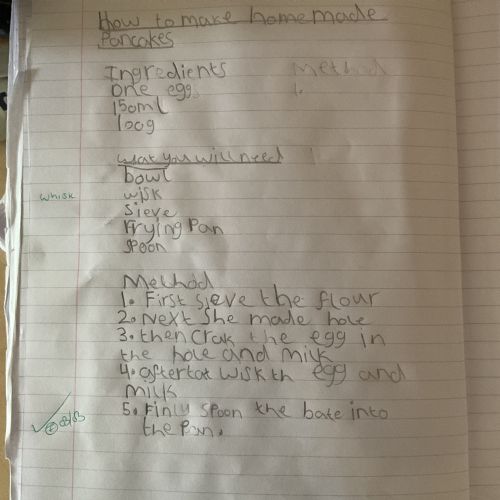 How to make homemade
Pancakes
Ingredients Method
one egg 1.
150ml
100g
wat you will need
bowl
whisk wisk
Sieve
Frying Pan
spoon
Method
1. First sieve the flour
2. Next she made hole
3. then crak the egg in
the hole and milk
4. aftertat wisk th egg and
milk
5. Finly spoon the bate into
the Pan.